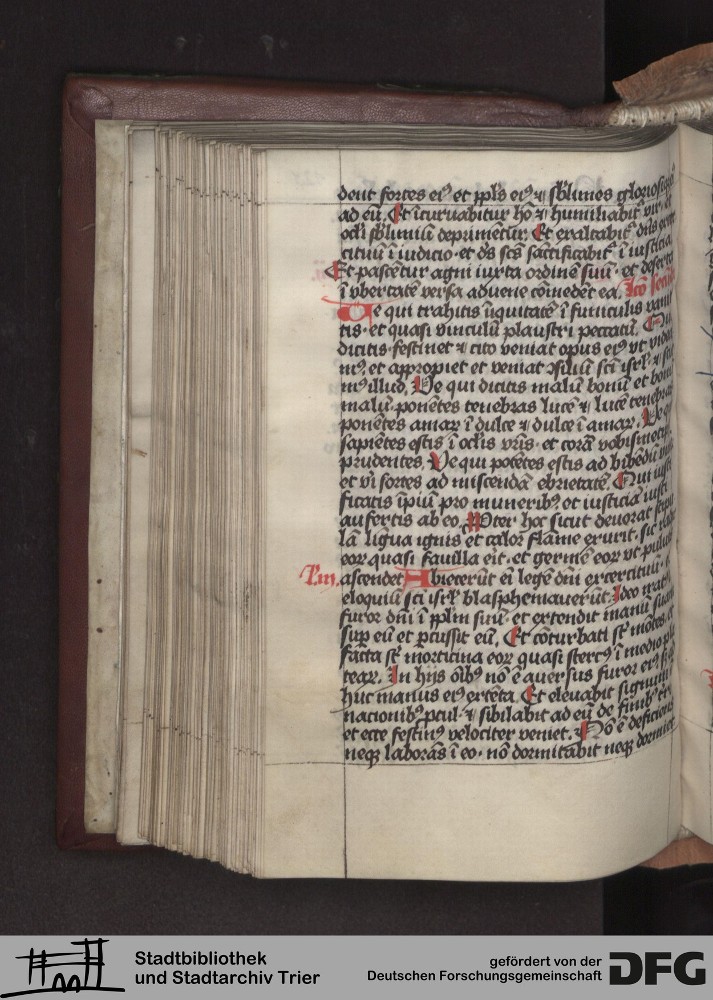 dent fortes eiꝰ et ppl̄s eiꝰ ⁊ sb̄limes gloriosiqꝫ
ad eū. Et īcuruabitur hō ⁊ humiliabit᷑ vir. et
ocl̓i sb̄limiū deprimētur. Et exaltabit᷑ dn̄s exer
cituū ī iudicio. et dꝰ sc̄s sāctificabit᷑ ī iusticia
Et pascētur agni iuxta ordinē suū. et deserta
ī vbertatē versa aduene comedēt ea. Lc̄o secūda
Ve qui trahitis īiquitatē ī funiculis vani
tis. et quasi vinculū plaustri peccatū. Qui
dicitis. festinet ⁊ cito veniat opus eiꝰ vt videa
mꝰ. et appropiet et veniat ꝯsiliū sc̄i isrl̄. ⁊ scie
mꝰ illud. Ve qui dicitis malū bonū et bonū
malū. ponētes tenebras lucē ⁊ lucē tenebras
ponētes amaꝝ ī dulce ⁊ dulce ī amaꝝ. Ve qui
sapiētes estis ī ocl̓is vr̄is. et corā vobismetip̄
prudentes. Ve qui potētes estis ad bibēdū vinū
et vi fortes ad miscendā ebrietatē. Qui iusti
ficatis īpiū pro muneribꝫ. et iusticiā iusti
aufertis ab eo. Pter hoc sicut deuorat stipu
lā ligua ignis et calor flāme exurit. sic radix
eoꝝ quasi fauilla eit. et germē eoꝝ vt puluis
P̄m. ascendet Abiecerūt eī legē dn̄i exercituū. et
eloquiū sc̄i isrl̄ blasphemauerūt. Ideo iratꝰ
furor dn̄i ī ppl̄m suū. et extendit manū suam
sup eū et ꝑcussit eū. Et cōturbati sī mōtes. et
facta sī morticina eoꝝ quasi stercꝰ ī medio pla
teaꝝ. In hijs oībꝫ nō ē auersus furor eiꝰ. sꝫ ad
huc manus eiꝰ extēta. Et eleuabit signum ī
nacionibꝫ ꝓcul. ⁊ sibilabit ad eū de finibꝫ tr̄e
et ecce festinꝰ velociter veniet. Nō ē deficiens
neqꝫ laborās ī eo. nō dormitabit neqꝫ dormiet
Stadtbibliothek
und Stadtarchiv Trier
gefördert von der
Deutschen Forschungsgemeinschaft
DFG